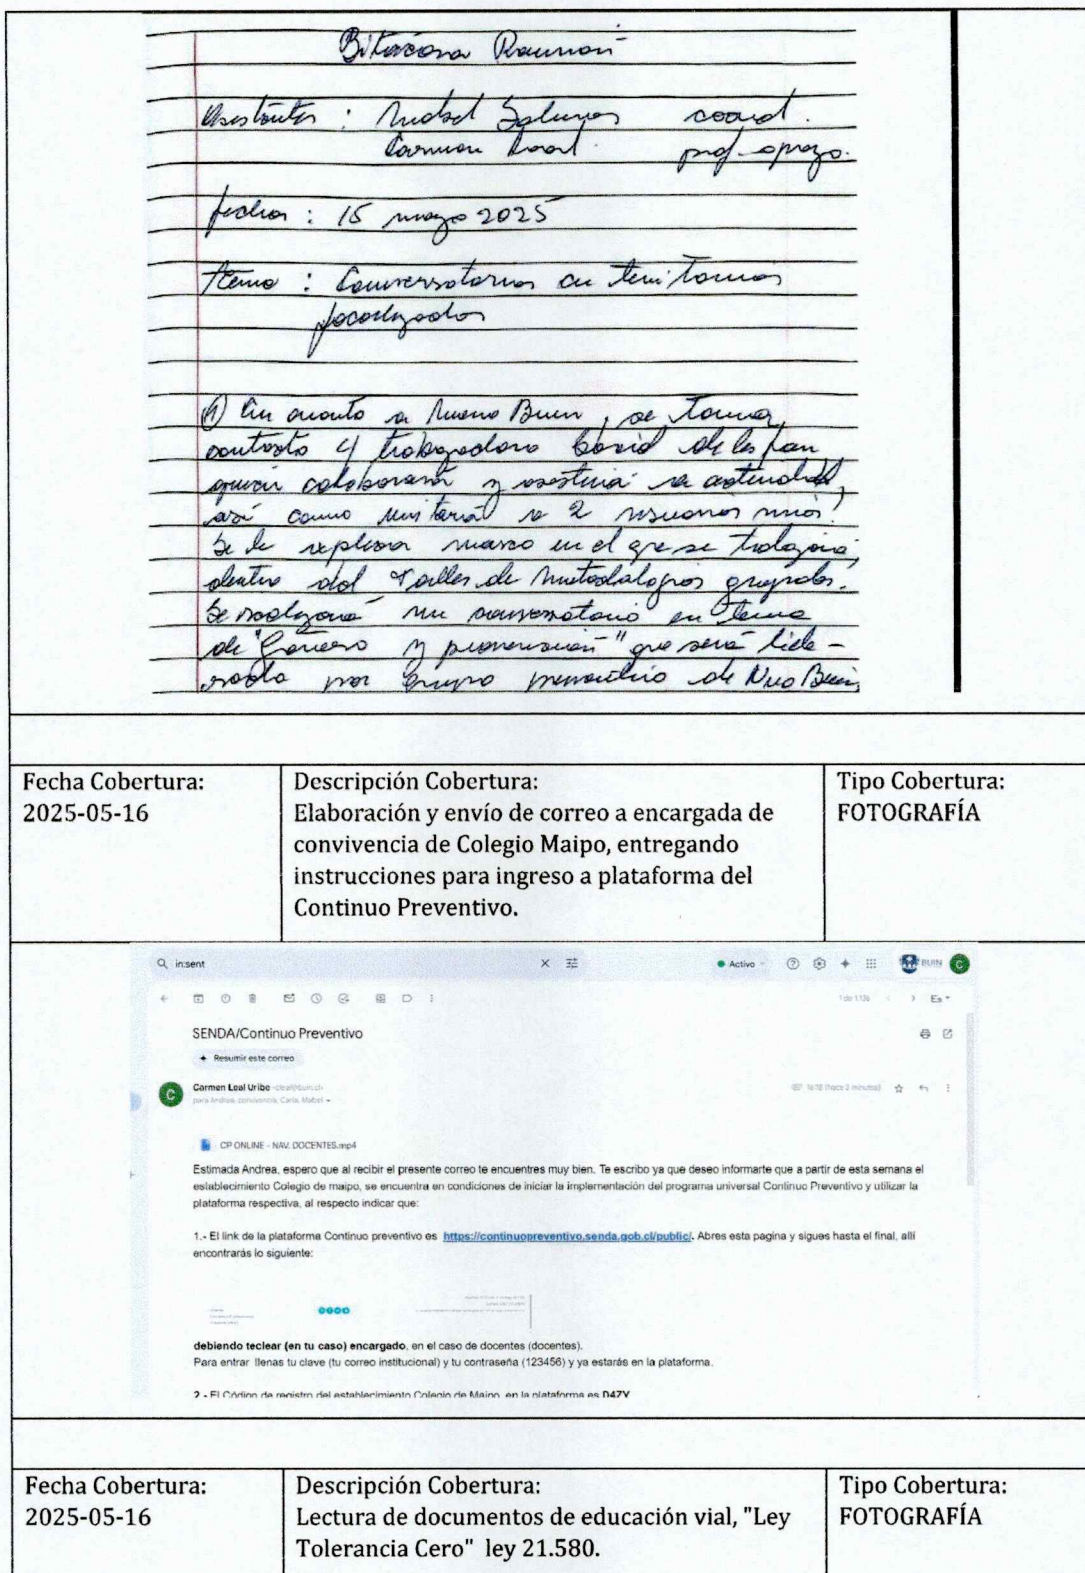 Bitácora Reunión
Asistentes : Mabel Salinas coord.
Carmen Leal prof. apoyo.
fecha : 15 mayo 2025
Tema : Conversatorios en territorios
focalizados
1) En cuanto a Nuevo Buin, se toma
contacto c/ trabajadora social
quien colaborará y asistirá a actividad,
así como invitará a 2
Se le explica marco en el que se trabajará,
dentro del Taller de metodologías grupales.
Se realizará un conversatorio en tema
de "Género y prevención" que será lide-
rado por grupo preventivo de Nvo Buin,
Fecha Cobertura:
2025-05-16
Descripción Cobertura:
Elaboración y envío de correo a encargada de
convivencia de Colegio Maipo, entregando
instrucciones para ingreso a plataforma del
Continuo Preventivo.
Tipo Cobertura:
FOTOGRAFÍA
in:sent
Activo
BUIN
C
1 de 1.136
Es
SENDA/Continuo Preventivo
Resumir este correo
C
Carmen Leal Uribe <cleal@buin.cl>
para Andrea, convivencia, Carla, Mabel
16:18 (hace 2 minutos)
CP ONLINE - NAV. DOCENTES.mp4
Estimada Andrea, espero que al recibir el presente correo te encuentres muy bien. Te escribo ya que deseo informarte que a partir de esta semana el
establecimiento Colegio de maipo, se encuentra en condiciones de iniciar la implementación del programa universal Continuo Preventivo y utilizar la
plataforma respectiva, al respecto indicar que:
1.- El link de la plataforma Continuo preventivo es https://continuopreventivo.senda.gob.cl/public/. Abres esta pagina y sigues hasta el final, alli
encontrarás lo siguiente:
debiendo teclear (en tu caso) encargado, en el caso de docentes (docentes).
Para entrar llenas tu clave (tu correo institucional) y tu contraseña (123456) y ya estarás en la plataforma.
2.- El Código de registro del establecimiento Colegio de Maipo, en la plataforma es D47Y
Fecha Cobertura:
2025-05-16
Descripción Cobertura:
Lectura de documentos de educación vial, "Ley
Tolerancia Cero" ley 21.580.
Tipo Cobertura:
FOTOGRAFÍA